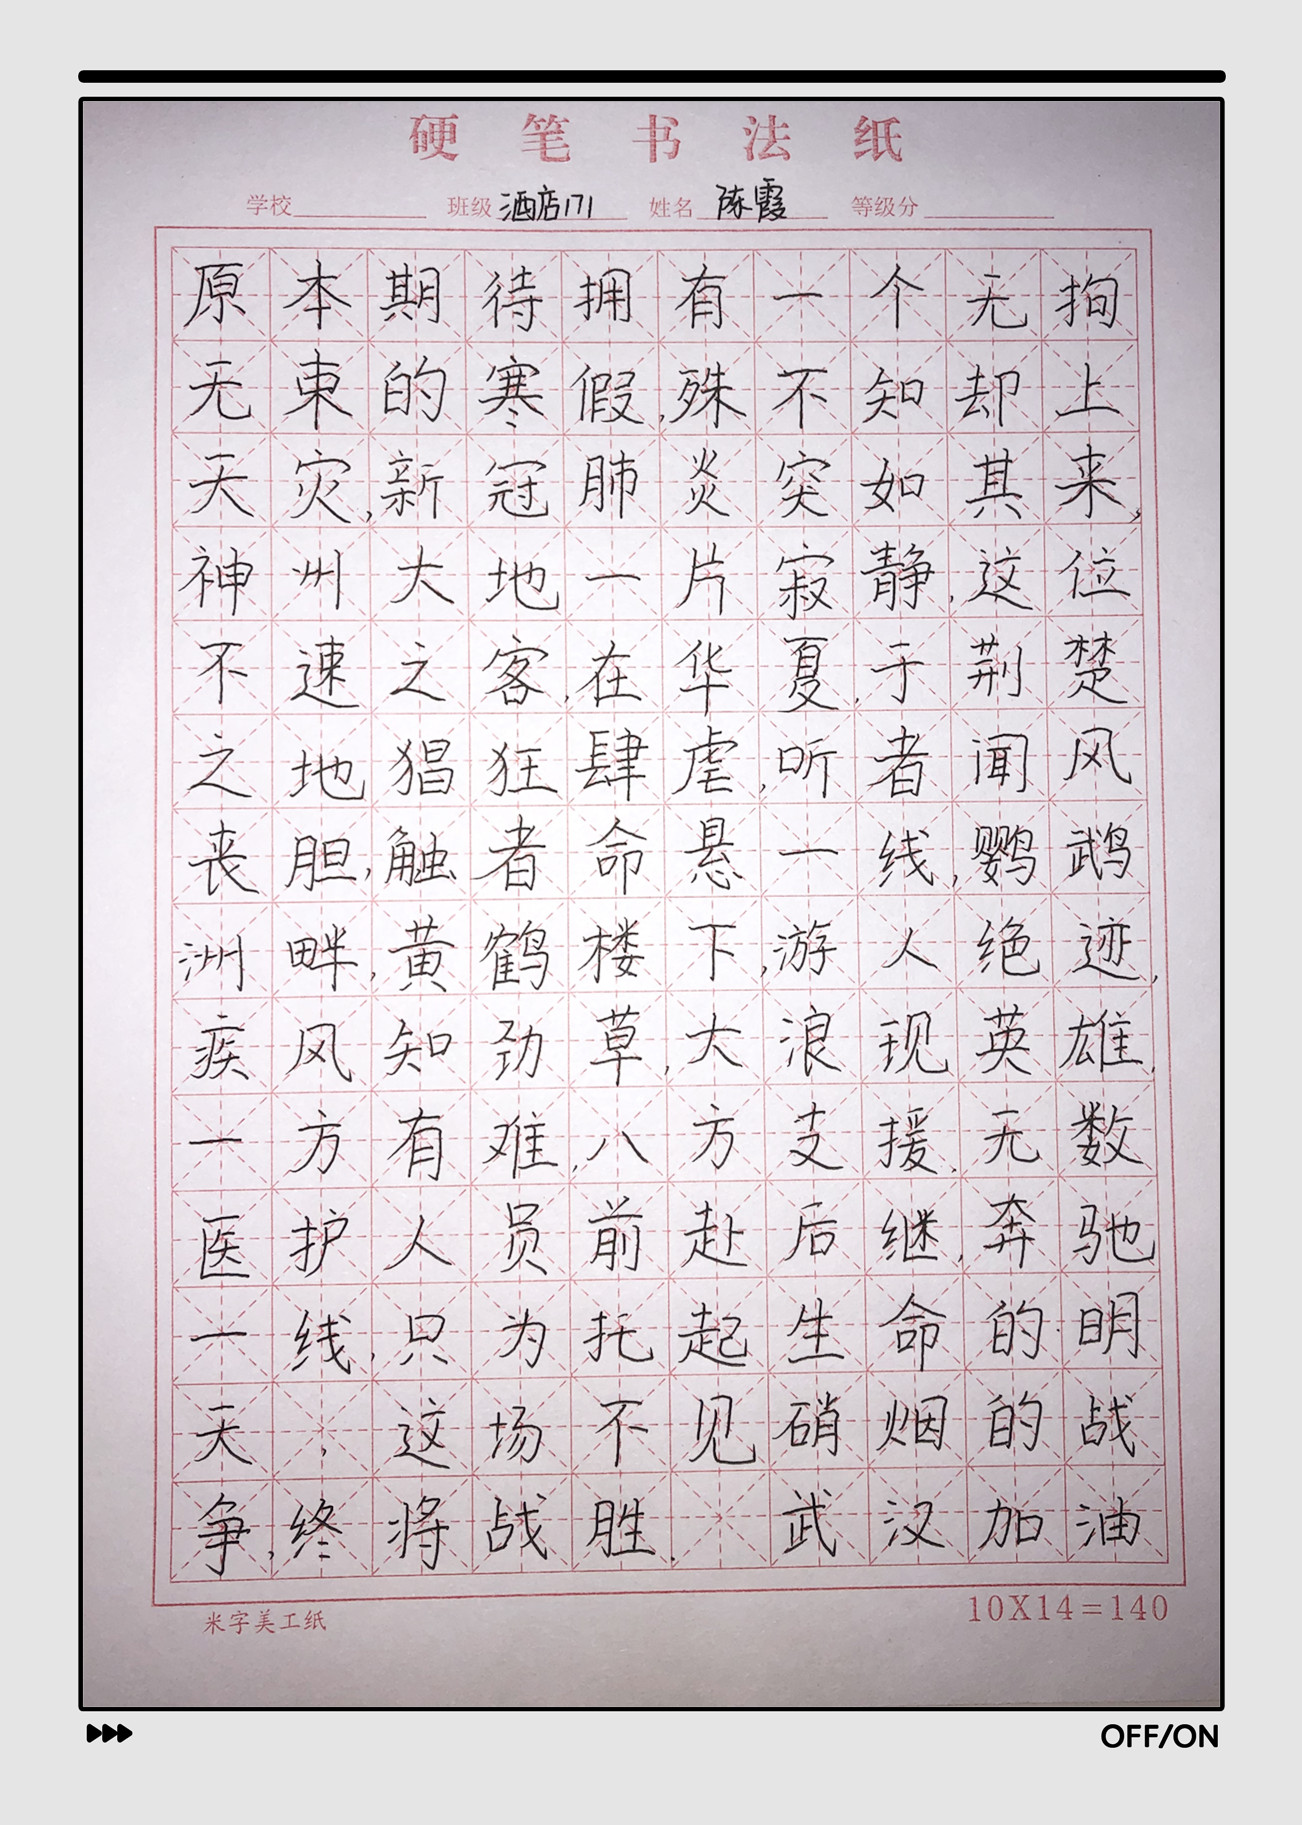 硬笔书法纸
学校 班级 酒店171 姓名 陈霞 等级分
原本期待拥有一个无拘
无束的寒假,殊不知却上
天灾,新冠肺炎突如其来,
神州大地一片寂静,这位
不速之客,在华夏,于荆楚
之地猖狂肆虐,听者闻风
丧胆,触者命悬一线,鹦鹉
洲畔,黄鹤楼下,游人绝迹,
疾风知劲草,大浪现英雄,
一方有难,八方支援,无数
医护人员前赴后继,奔驰
一线,只为托起生命的明
天,这场不见硝烟的战
争,终将战胜. 武汉加油
米字美工纸 10X14=140
OFF/ON